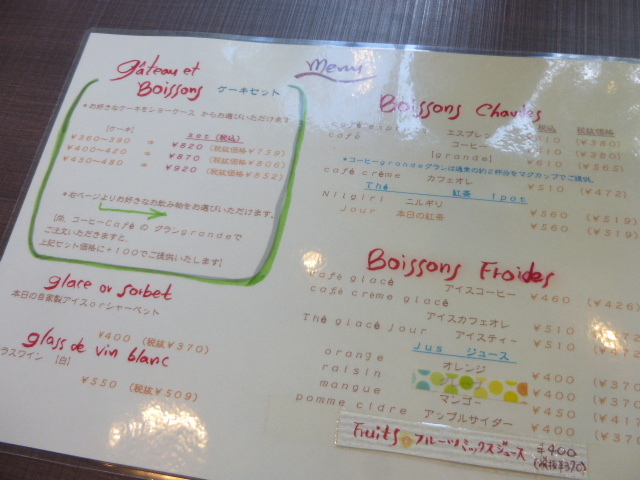 Menu
gâteau et
Boissons ケーキセット
*お好きなケーキをショーケース からお選びいただけます
[ケーキ] set(税込)
¥360~390 = ¥820 (税抜価格¥759)
¥400~420 = ¥870 (税抜価格¥806)
¥450~480 = ¥920 (税抜価格¥852)
*右ページよりお好きなお飲み物をお選びいただけます。
[尚、コーヒーCaféの グランgrandeで
ご注文いただきますと、
上記セット価格に+100でご提供いたします]
glace or sorbet
本日の自家製アイスorシャーベット
¥400 (税抜¥370)
glass de vin blanc
ラスワイン [白]
¥550 (税抜¥509)
Boissons Chaudes
税込 税抜価格
エスプレッソ (¥380)
café コーヒー (¥380)
[grande] ¥610 (¥565)
*コーヒーgrandeグランは通常の約2杯分をマグカップでご提供。
café crème カフェオレ ¥510 (¥472)
Thé 紅茶 1pot
Nilgiri ニルギリ ¥560 (¥519)
Jour 本日の紅茶 ¥560 (¥519)
Boissons Froides
café glacé アイスコーヒー ¥460 (¥426
café crème glacé
アイスカフェオレ ¥510 (¥472
Thé glacé jour アイスティー ¥510
Jus ジュース
orange オレンジ ¥400 (¥370
raisin ¥400 (¥370
mangue マンゴー ¥450 (¥417
pomme cidre アップルサイダー ¥400 (¥370
Fruits フルーツミックスジュース ¥400
(税抜¥370)